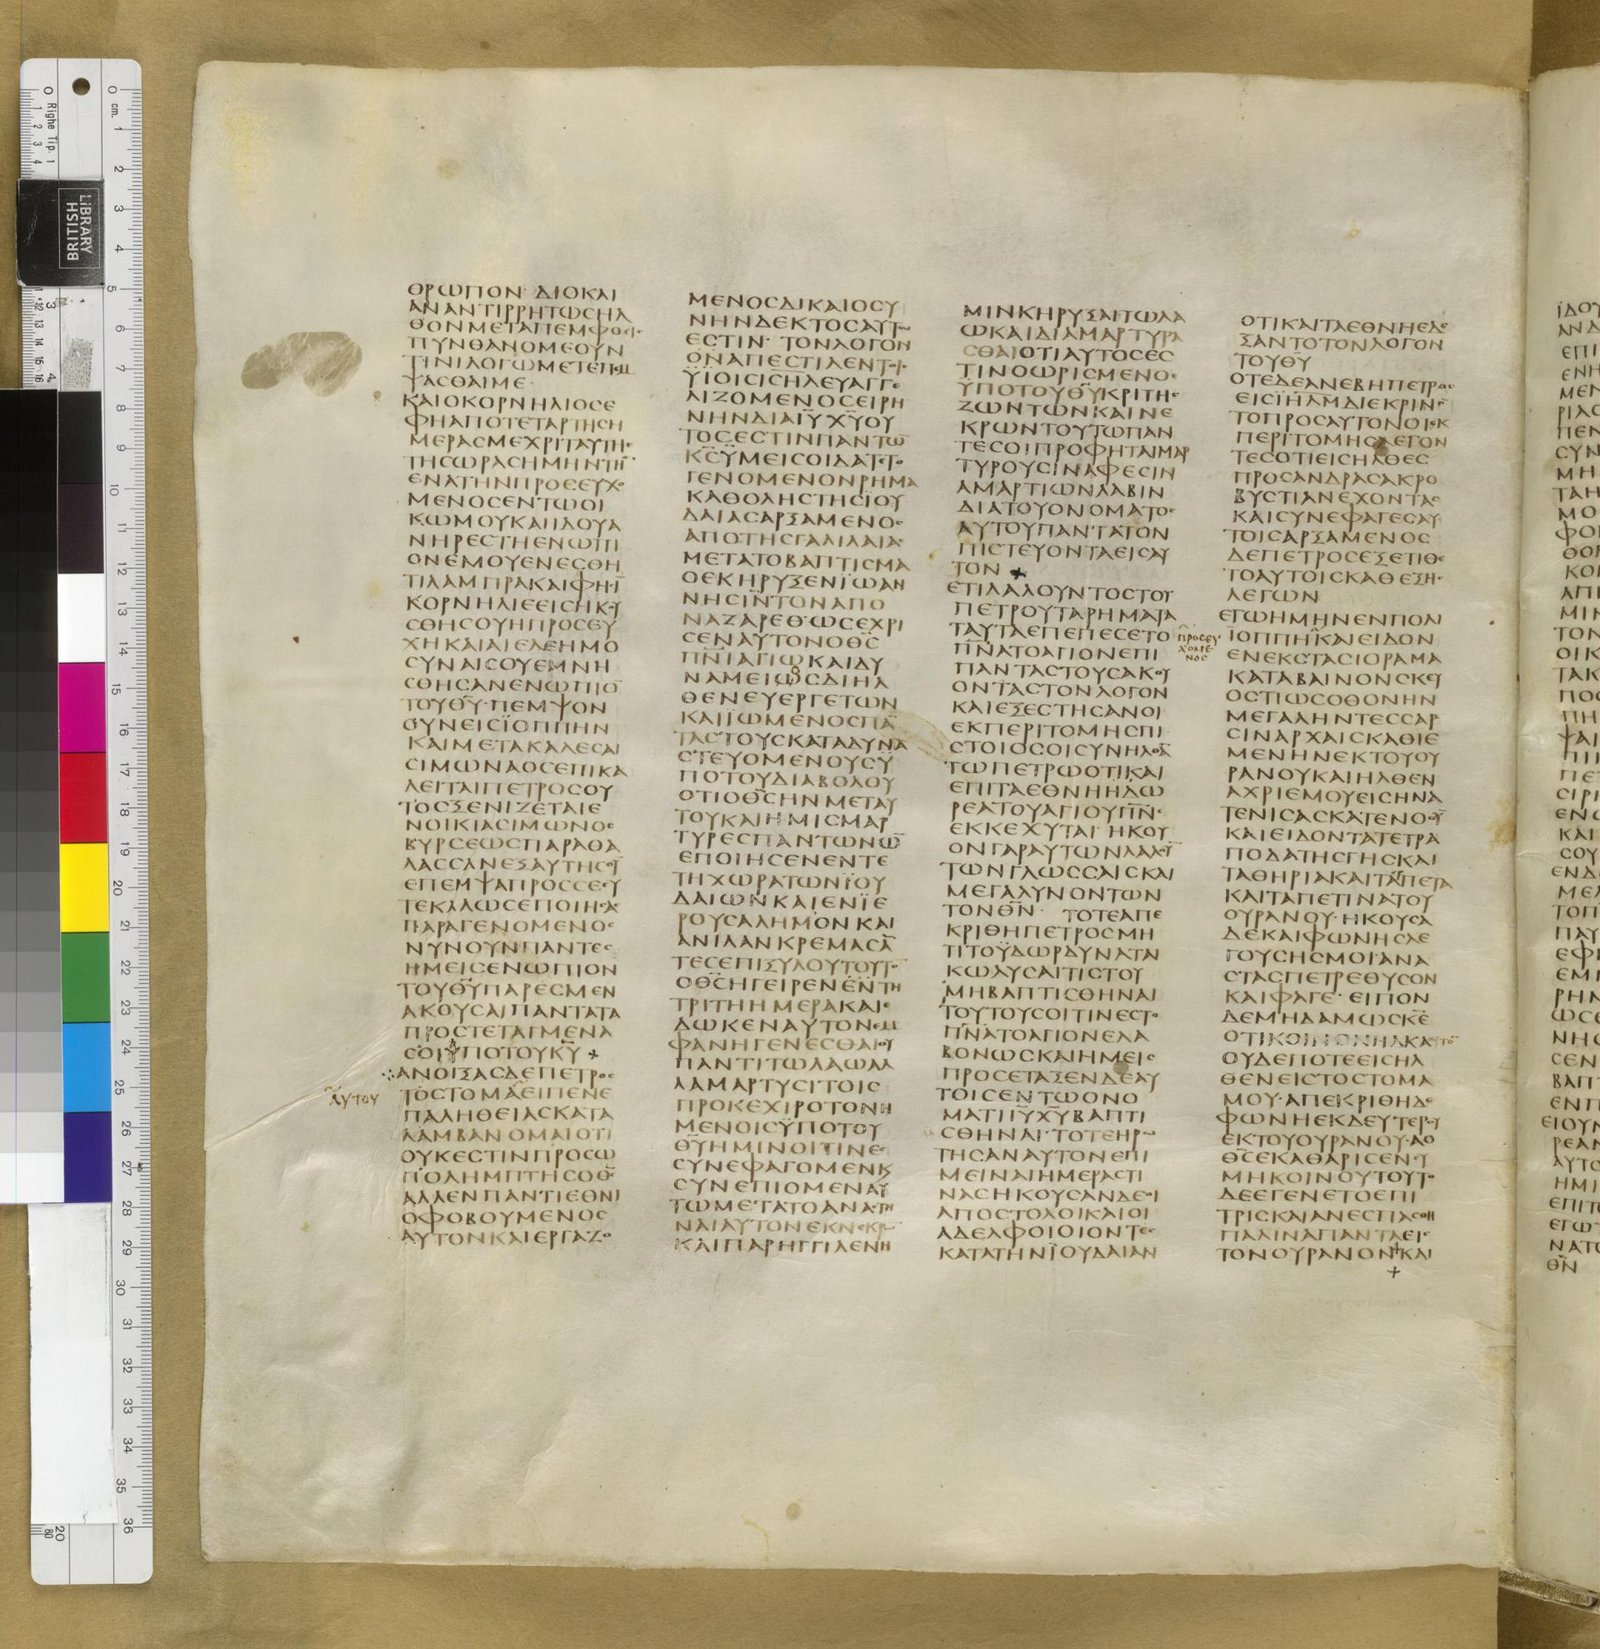 ΘΡΩΠΟΝ· ΔΙΟΚΑΙ
ΑΝΑΝΤΙΡΡΗΤΩϹΗΛ
ΘΟΝΜΕΤΑΠΕΜΦΘΕΙϹ
ΠΥΝΘΑΝΟΜΕΟΥΝ
ΤΙΝΙΛΟΓΩΜΕΤΕΠΕΜ
ΨΑϹΘΑΙΜΕ·
ΚΑΙΟΚΟΡΝΗΛΙΟϹΕ
ΦΗΑΠΟΤΕΤΑΡΤΗϹΗ
ΜΕΡΑϹΜΕΧΡΙΤΑΥΤΗϹ
ΤΗϹΩΡΑϹΗΜΗΝΤΗ̅
ΕΝΑΤΗΝΠΡΟϹΕΥΧΟ
ΜΕΝΟϹΕΝΤΩΟΙ
ΚΩΜΟΥΚΑΙΙΔΟΥΑ
ΝΗΡΕϹΤΗΕΝΩΠΙ
ΟΝΕΜΟΥΕΝΕϹΘΗ
ΤΙΛΑΜΠΡΑΚΑΙΦΗϹΙ
ΚΟΡΝΗΛΙΕΕΙϹΗΚΟΥ
ϹΘΗϹΟΥΗΠΡΟϹΕΥ
ΧΗΚΑΙΑΙΕΛΕΗΜΟ
ϹΥΝΑΙϹΟΥΕΜΝΗ
ϹΘΗϹΑΝΕΝΩΠΙΟ̅
ΤΟΥΘ̅Υ̅·ΠΕΜΨΟΝ
ΟΥΝΕΙϹΪΟΠΠΗΝ
ΚΑΙΜΕΤΑΚΑΛΕϹΑΙ
ϹΙΜΩΝΑΟϹΕΠΙΚΑ
ΛΕΙΤΑΙΠΕΤΡΟϹΟΥ
ΤΟϹΞΕΝΙΖΕΤΑΙΕ
ΝΟΙΚΙΑϹΙΜΩΝΟϹ
ΒΥΡϹΕΩϹΠΑΡΑΘΑ
ΛΑϹϹΑΝΕΞΑΥΤΗϹΟΥ̅
ΕΠΕΜΨΑΠΡΟϹϹΕϹΥ
ΤΕΚΑΛΩϹΕΠΟΙΗϹΑϹ
ΠΑΡΑΓΕΝΟΜΕΝΟϹ
ΝΥΝΟΥΝΠΑΝΤΕϹ
ΗΜΕΙϹΕΝΩΠΙΟΝ
ΤΟΥΘ̅Υ̅ΠΑΡΕϹΜΕΝ
ΑΚΟΥϹΑΙΠΑΝΤΑΤΑ
ΠΡΟϹΤΕΤΑΓΜΕΝΑ
ϹΟΙΫΠΟΤΟΥΚ̅Υ̅ +
ΑΝΟΙΞΑϹΔΕΠΕΤΡΟϹ
ΑΥΤΟΥ
ΤΟϹΤΟΜΑΕΙΠΕΝΕ
ΠΑΛΗΘΕΙΑϹΚΑΤΑ
ΛΑΜΒΑΝΟΜΑΙΟΤΙ
ΟΥΚΕϹΤΙΝΠΡΟϹΩ
ΠΟΛΗΜΠΤΗϹΟΘ̅Ϲ̅
ΑΛΛΕΝΠΑΝΤΙΕΘΝΙ
ΟΦΟΒΟΥΜΕΝΟϹ
ΑΥΤΟΝΚΑΙΕΡΓΑΖΟ
ΜΕΝΟϹΔΙΚΑΙΟϹΥ
ΝΗΝΔΕΚΤΟϹΑΥΤΩ
ΕϹΤΙΝ· ΤΟΝΛΟΓΟΝ
ΟΝΑΠΕϹΤΙΛΕΝΤΟΙϹ
ΫΙΟΙϹΙϹΗΛΕΥΑΓΓΕ
ΛΙΖΟΜΕΝΟϹΕΙΡΗ
ΝΗΝΔΙΑΙ̅Υ̅Χ̅Υ̅ΟΥ
ΤΟϹΕϹΤΙΝΠΑΝΤΩ̅
Κ̅Ϲ̅ΫΜΕΙϹΟΙΔΑΤΕΤΟ
ΓΕΝΟΜΕΝΟΝΡΗΜΑ
ΚΑΘΟΛΗϹΤΗϹΙΟΥ
ΔΑΙΑϹΑΡΞΑΜΕΝΟϹ
ΑΠΟΤΗϹΓΑΛΙΛΑΙΑϹ
ΜΕΤΑΤΟΒΑΠΤΙϹΜΑ
ΟΕΚΗΡΥΞΕΝΪΩΑΝ
ΝΗϹΙ̅Ν̅ΤΟΝΑΠΟ
ΝΑΖΑΡΕΘ·ΩϹΕΧΡΙ
ϹΕΝΑΥΤΟΝΟΘ̅Ϲ̅
Π̅Ν̅Ι̅ΑΓΙΩΚΑΙΔΥ
ΝΑΜΕΙΩϹΔΙΗΛ
ΘΕΝΕΥΕΡΓΕΤΩΝ
ΚΑΙΪΩΜΕΝΟϹΠΑ̅
ΤΑϹΤΟΥϹΚΑΤΑΔΥΝΑ
ϹΤΕΥΟΜΕΝΟΥϹΫ
ΠΟΤΟΥΔΙΑΒΟΛΟΥ
ΟΤΙΟΘ̅Ϲ̅ΗΝΜΕΤΑΥ
ΤΟΥΚΑΙΗΜΙϹΜΑΡ
ΤΥΡΕϹΠΑΝΤΩΝΩ̅
ΕΠΟΙΗϹΕΝΕΝΤΕ
ΤΗΧΩΡΑΤΩΝΪΟΥ
ΔΑΙΩΝΚΑΙΕΝΪΕ
ΡΟΥϹΑΛΗΜΟΝΚΑΙ
ΑΝΙΛΑΝΚΡΕΜΑϹΑ̅
ΤΕϹΕΠΙΞΥΛΟΥΤΟΥΤΟ̅
ΟΘ̅Ϲ̅ΗΓΕΙΡΕΝΕΝΤΗ
ΤΡΙΤΗΗΜΕΡΑΚΑΙΕ
ΔΩΚΕΝΑΥΤΟΝΕΜ
ΦΑΝΗΓΕΝΕϹΘΑΙΟΥ
ΠΑΝΤΙΤΩΛΑΩΑΛ
ΛΑΜΑΡΤΥϹΙΤΟΙϹ
ΠΡΟΚΕΧΙΡΟΤΟΝΗ
ΜΕΝΟΙϹΫΠΟΤΟΥ
Θ̅Υ̅ΗΜΙΝΟΙΤΙΝΕϹ
ϹΥΝΕΦΑΓΟΜΕΝΚ
ϹΥΝΕΠΙΟΜΕΝΑΥ
ΤΩΜΕΤΑΤΟΑΝΑϹΤΗ
ΝΑΙΑΥΤΟΝΕΚΝΕΚΡΩ̅
ΚΑΙΠΑΡΗΓΓΙΛΕΝΗ
ΜΙΝΚΗΡΥΞΑΙΤΩΛΑ
ΩΚΑΙΔΙΑΜΑΡΤΥΡΑ
ϹΘΑΙΟΤΙΑΥΤΟϹΕϹ
ΤΙΝΟΩΡΙϹΜΕΝΟϹ
ΫΠΟΤΟΥΘ̅Υ̅ΚΡΙΤΗϹ
ΖΩΝΤΩΝΚΑΙΝΕ
ΚΡΩΝΤΟΥΤΩΠΑΝ
ΤΕϹΟΙΠΡΟΦΗΤΑΙΜΑΡ
ΤΥΡΟΥϹΙΝΑΦΕϹΙΝ
ΑΜΑΡΤΙΩΝΛΑΒΙΝ
ΔΙΑΤΟΥΟΝΟΜΑΤΟϹ
ΑΥΤΟΥΠΑΝΤΑΤΟΝ
ΠΙϹΤΕΥΟΝΤΑΕΙϹΑΥ
ΤΟΝ +
ΕΤΙΛΑΛΟΥΝΤΟϹΤΟΥ
ΠΕΤΡΟΥΤΑΡΗΜΑΤΑ
ΤΑΥΤΑΕΠΕΠΕϹΕΤΟ
Π̅Ν̅ΑΤΟΑΓΙΟΝΕΠΙ
ΠΑΝΤΑϹΤΟΥϹΑΚΟΥ
ΟΝΤΑϹΤΟΝΛΟΓΟΝ
ΚΑΙΕΞΕϹΤΗϹΑΝΟΙ
ΕΚΠΕΡΙΤΟΜΗϹΠΙ
ϹΤΟΙΟϹΟΙϹΥΝΗΛΘΑ̅
ΤΩΠΕΤΡΩΟΤΙΚΑΙ
ΕΠΙΤΑΕΘΝΗΗΔΩ
ΡΕΑΤΟΥΑΓΙΟΥΠ̅Ν̅Ϲ̅
ΕΚΚΕΧΥΤΑΙ· ΗΚΟΥ
ΟΝΓΑΡΑΥΤΩΝΛΑΛΟΥ̅
ΤΩΝΓΛΩϹϹΑΙϹΚΑΙ
ΜΕΓΑΛΥΝΟΝΤΩΝ
ΤΟΝΘ̅Ν̅· ΤΟΤΕΑΠΕ
ΚΡΙΘΗΠΕΤΡΟϹΜΗ
ΤΙΤΟΫΔΩΡΔΥΝΑΤΑΙ
ΚΩΛΥϹΑΙΤΙϹΤΟΥ
ΜΗΒΑΠΤΙϹΘΗΝΑΙ
ΤΟΥΤΟΥϹΟΙΤΙΝΕϹΤΟ
Π̅Ν̅ΑΤΟΑΓΙΟΝΕΛΑ
ΒΟΝΩϹΚΑΙΗΜΕΙϹ
ΠΡΟϹΕΤΑΞΕΝΔΕΑΥ
ΤΟΙϹΕΝΤΩΟΝΟ
ΜΑΤΙΙ̅Υ̅Χ̅Υ̅ΒΑΠΤΙ
ϹΘΗΝΑΙ·ΤΟΤΕΗΡΩ
ΤΗϹΑΝΑΥΤΟΝΕΠΙ
ΜΕΙΝΑΙΗΜΕΡΑϹΤΙ
ΝΑϹΗΚΟΥϹΑΝΔΕΟΙ
ΑΠΟϹΤΟΛΟΙΚΑΙΟΙ
ΑΔΕΛΦΟΙΟΙΟΝΤΕϹ
ΚΑΤΑΤΗΝΪΟΥΔΑΙΑΝ
ΟΤΙΚΑΙΤΑΕΘΝΗΕΔΕ
ΞΑΝΤΟΤΟΝΛΟΓΟΝ
ΤΟΥΘ̅Υ̅
ΟΤΕΔΕΑΝΕΒΗΠΕΤΡΟϹ
ΕΙϹΪΗΛΜΔΙΕΚΡΙΝΟ̅
ΤΟΠΡΟϹΑΥΤΟΝΟΙΕΚ
ΠΕΡΙΤΟΜΗϹΛΕΓΟΝ
ΤΕϹΟΤΙΕΙϹΗΛΘΕϹ
ΠΡΟϹΑΝΔΡΑϹΑΚΡΟ
ΒΥϹΤΙΑΝΕΧΟΝΤΑϹ
ΚΑΙϹΥΝΕΦΑΓΕϹΑΥ
ΤΟΙϹΑΡΞΑΜΕΝΟϹ
ΔΕΠΕΤΡΟϹΕΞΕΤΙΘΕ
ΤΟΑΥΤΟΙϹΚΑΘΕΞΗϹ
ΛΕΓΩΝ
ΕΓΩΗΜΗΝΕΝΠΟΛΙ
ΠΡΟϹΕΥ
ΧΟΜΕ
ΝΟϹ
ΙΟΠΠΗΚΑΙΕΙΔΟΝ
ΕΝΕΚϹΤΑϹΙΟΡΑΜΑ
ΚΑΤΑΒΑΙΝΟΝϹΚΕΥ
ΟϹΤΙΩϹΟΘΟΝΗΝ
ΜΕΓΑΛΗΝΤΕϹϹΑΡ
ϹΙΝΑΡΧΑΙϹΚΑΘΙΕ
ΜΕΝΗΝΕΚΤΟΥΟΥ
ΡΑΝΟΥΚΑΙΗΛΘΕΝ
ΑΧΡΙΕΜΟΥΕΙϹΗΝΑ
ΤΕΝΙϹΑϹΚΑΤΕΝΟΟΥ̅
ΚΑΙΕΙΔΟΝΤΑΤΕΤΡΑ
ΠΟΔΑΤΗϹΓΗϹΚΑΙ
ΤΑΘΗΡΙΑΚΑΙΤΑΕΡΠΕΤΑ
ΚΑΙΤΑΠΕΤΙΝΑΤΟΥ
ΟΥΡΑΝΟΥ·ΗΚΟΥϹΑ
ΔΕΚΑΙΦΩΝΗϹΛΕ
ΓΟΥϹΗϹΜΟΙ·ΑΝΑ
ϹΤΑϹΠΕΤΡΕΘΥϹΟΝ
ΚΑΙΦΑΓΕ· ΕΙΠΟΝ
ΔΕΜΗΔΑΜΩϹΚ̅Ε̅
ΟΤΙΚΟΙΝΟΝΗΑΚΑ
ΟΥΔΕΠΟΤΕΕΙϹΗΛ
ΘΕΝΕΙϹΤΟϹΤΟΜΑ
ΜΟΥ·ΑΠΕΚΡΙΘΗΔΕ
ΦΩΝΗΕΚΔΕΥΤΕΡΟΥ
ΕΚΤΟΥΟΥΡΑΝΟΥ·ΑΟ
Θ̅Ϲ̅ΕΚΑΘΑΡΙϹΕΝϹΥ
ΜΗΚΟΙΝΟΥΤΟΥΤΟ
ΔΕΕΓΕΝΕΤΟΕΠΙ
ΤΡΙϹΚΑΙΑΝΕϹΠΑϹΘΗ
ΠΑΛΙΝΑΠΑΝΤΑΕΙϹ
ΤΟΝΟΥΡΑΝΟΝΚΑΙ
+